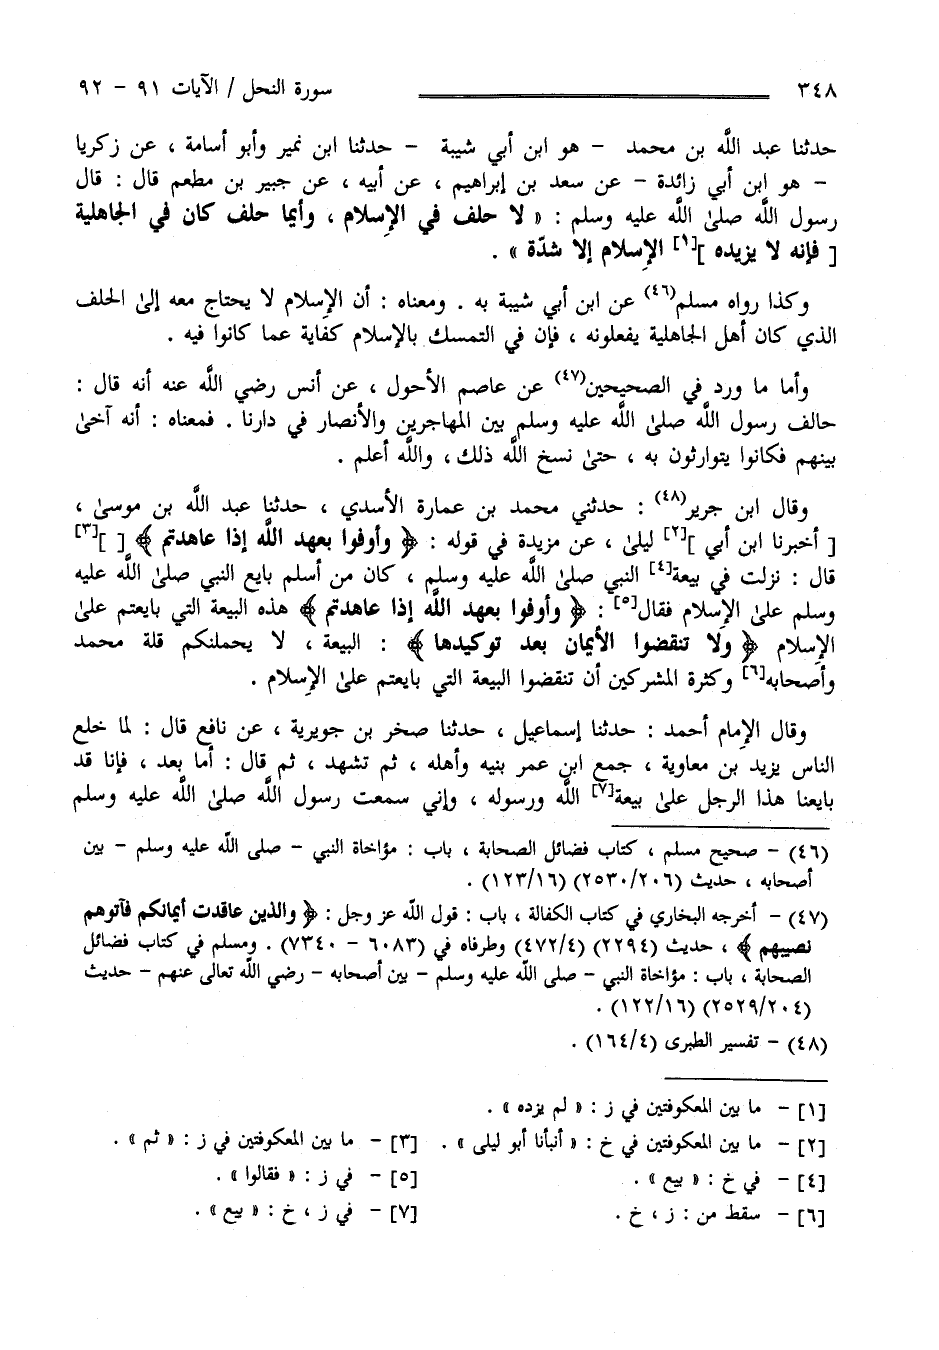 ٣٤٨ سورة النحل / الآيات ٩١ - ٩٢
حدثنا عبد اللَّه بن محمد - هو ابن أبي شيبة - حدثنا ابن نمير وأبو أسامة ، عن زكريا
- هو ابن أبي زائدة - عن سعد بن إبراهيم ، عن أبيه ، عن جبير بن مطعم قال : قال
رسول اللَّه صلىٰ اللَّه عليه وسلم : « لا حلف في الإسلام ، وأيما حلف كان في الجاهلية
[ فإنه لا يزيده ][١] الإسلام إلا شدّة » .
وكذا رواه مسلم(٤٦) عن ابن أبي شيبة به . ومعناه : أن الإسلام لا يحتاج معه إلىٰ الحلف
الذي كان أهل الجاهلية يفعلونه ، فإن في التمسك بالإسلام كفاية عما كانوا فيه .
وأما ما ورد في الصحيحين(٤٧) عن عاصم الأحول ، عن أنس رضي اللَّه عنه أنه قال :
حالف رسول اللَّه صلىٰ اللَّه عليه وسلم بين المهاجرين والأنصار في دارنا . فمعناه : أنه آخىٰ
بينهم فكانوا يتوارثون به ، حتىٰ نسخ اللَّه ذلك ، واللَّه أعلم .
وقال ابن جرير(٤٨) : حدثني محمد بن عمارة الأسدي ، حدثنا عبد اللَّه بن موسىٰ ،
[ أخبرنا ابن أبي ][٢] ليلىٰ ، عن مزيدة في قوله : ﴿ وأوفوا بعهد اللَّه إذا عاهدتم ﴾ [ ][٣]
قال : نزلت في بيعة[٤] النبي صلىٰ اللَّه عليه وسلم ، كان من أسلم بايع النبي صلىٰ اللَّه عليه
وسلم علىٰ الإسلام فقال[٥] : ﴿ وأوفوا بعهد اللَّه إذا عاهدتم ﴾ هذه البيعة التي بايعتم علىٰ
الإسلام ﴿ ولا تنقضوا الأيمان بعد توكيدها ﴾ : البيعة ، لا يحملنكم قلة محمد
وأصحابه[٦] وكثرة المشركين أن تنقضوا البيعة التي بايعتم علىٰ الإسلام .
وقال الإمام أحمد : حدثنا إسماعيل ، حدثنا صخر بن جويرية ، عن نافع قال : لما خلع
الناس يزيد بن معاوية ، جمع ابن عمر بنيه وأهله ، ثم تشهد ، ثم قال : أما بعد ، فإنا قد
بايعنا هذا الرجل علىٰ بيعة[٧] اللَّه ورسوله ، وإني سمعت رسول اللَّه صلىٰ اللَّه عليه وسلم
(٤٦) - صحيح مسلم ، كتاب فضائل الصحابة ، باب : مؤاخاة النبي - صلى اللَّه عليه وسلم - بين
أصحابه ، حديث (٢٥٣٠/٢٠٦) (١٢٣/١٦) .
(٤٧) - أخرجه البخاري في كتاب الكفالة ، باب : قول اللَّه عز وجل : ﴿ والذين عاقدت أيمانكم فآتوهم
نصيبهم ﴾ ، حديث (٢٢٩٤) (٤٧٢/٤) وطرفاه في (٦٠٨٣ - ٧٣٤٠) . ومسلم في كتاب فضائل
الصحابة ، باب : مؤاخاة النبي - صلى اللَّه عليه وسلم - بين أصحابه - رضي اللَّه تعالى عنهم - حديث
(٢٥٢٩/٢٠٤) (١٢٢/١٦) .
(٤٨) - تفسير الطبرى (١٦٤/٤) .
[١] - ما بين المعكوفتين في ز : « لم يزده » .
[٢] - ما بين المعكوفتين في خ : « أنبأنا أبو ليلى » . [٣] - ما بين المعكوفتين في ز : « ثم » .
[٤] - في خ : « بيع » . [٥] - في ز : « فقالوا » .
[٦] - سقط من : ز ، خ . [٧] - في ز ، خ : « بيع » .